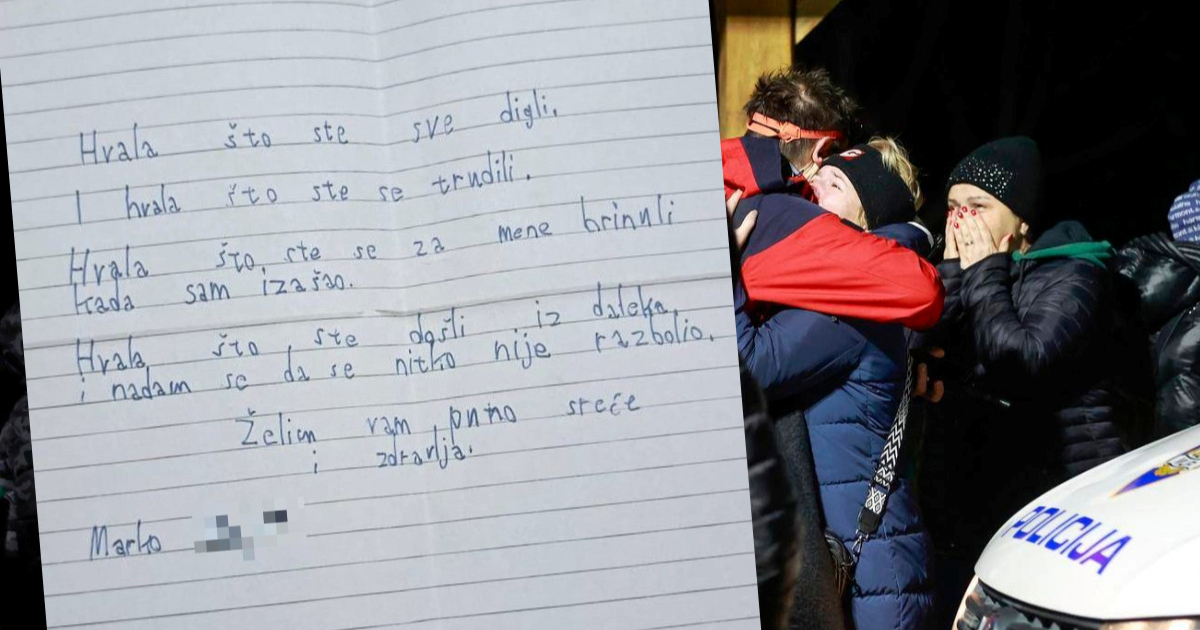 Hvala što ste sve digli.
I hvala što ste se trudili.
Hvala što ste se za mene brinuli
kada sam izašao.
Hvala što ste došli iz daleka,
i nadam se da se nitko nije razbolio.
Želim vam puno sreće
i zdravlja.
Marko
POLICIJA